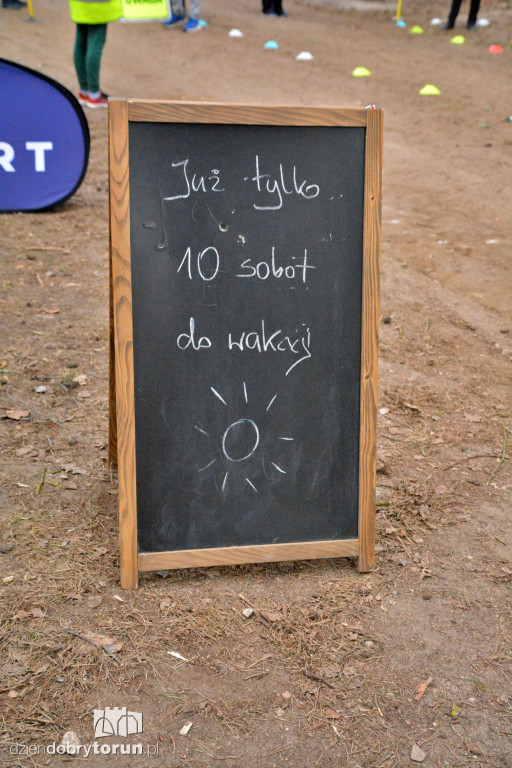 RT
Już tylko
10 sobót
do wakcji
dziendobrytorun.pl